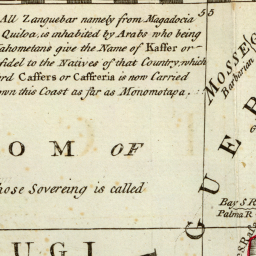 All Zanguebar namely from Magadocia
Quiloa, is inhabited by Arabs who being
ahometans give the Name of Kaffer or
fidel to the Natives of that Country, which
rd Caffers or Caffreria is now Carried
own this Coast as far as Monomotapa.
55
MOSSEG
Barbarian
OM OF
hose Sovereing is called
GUEB
Bay S.R
Palma R
UGI
S.R